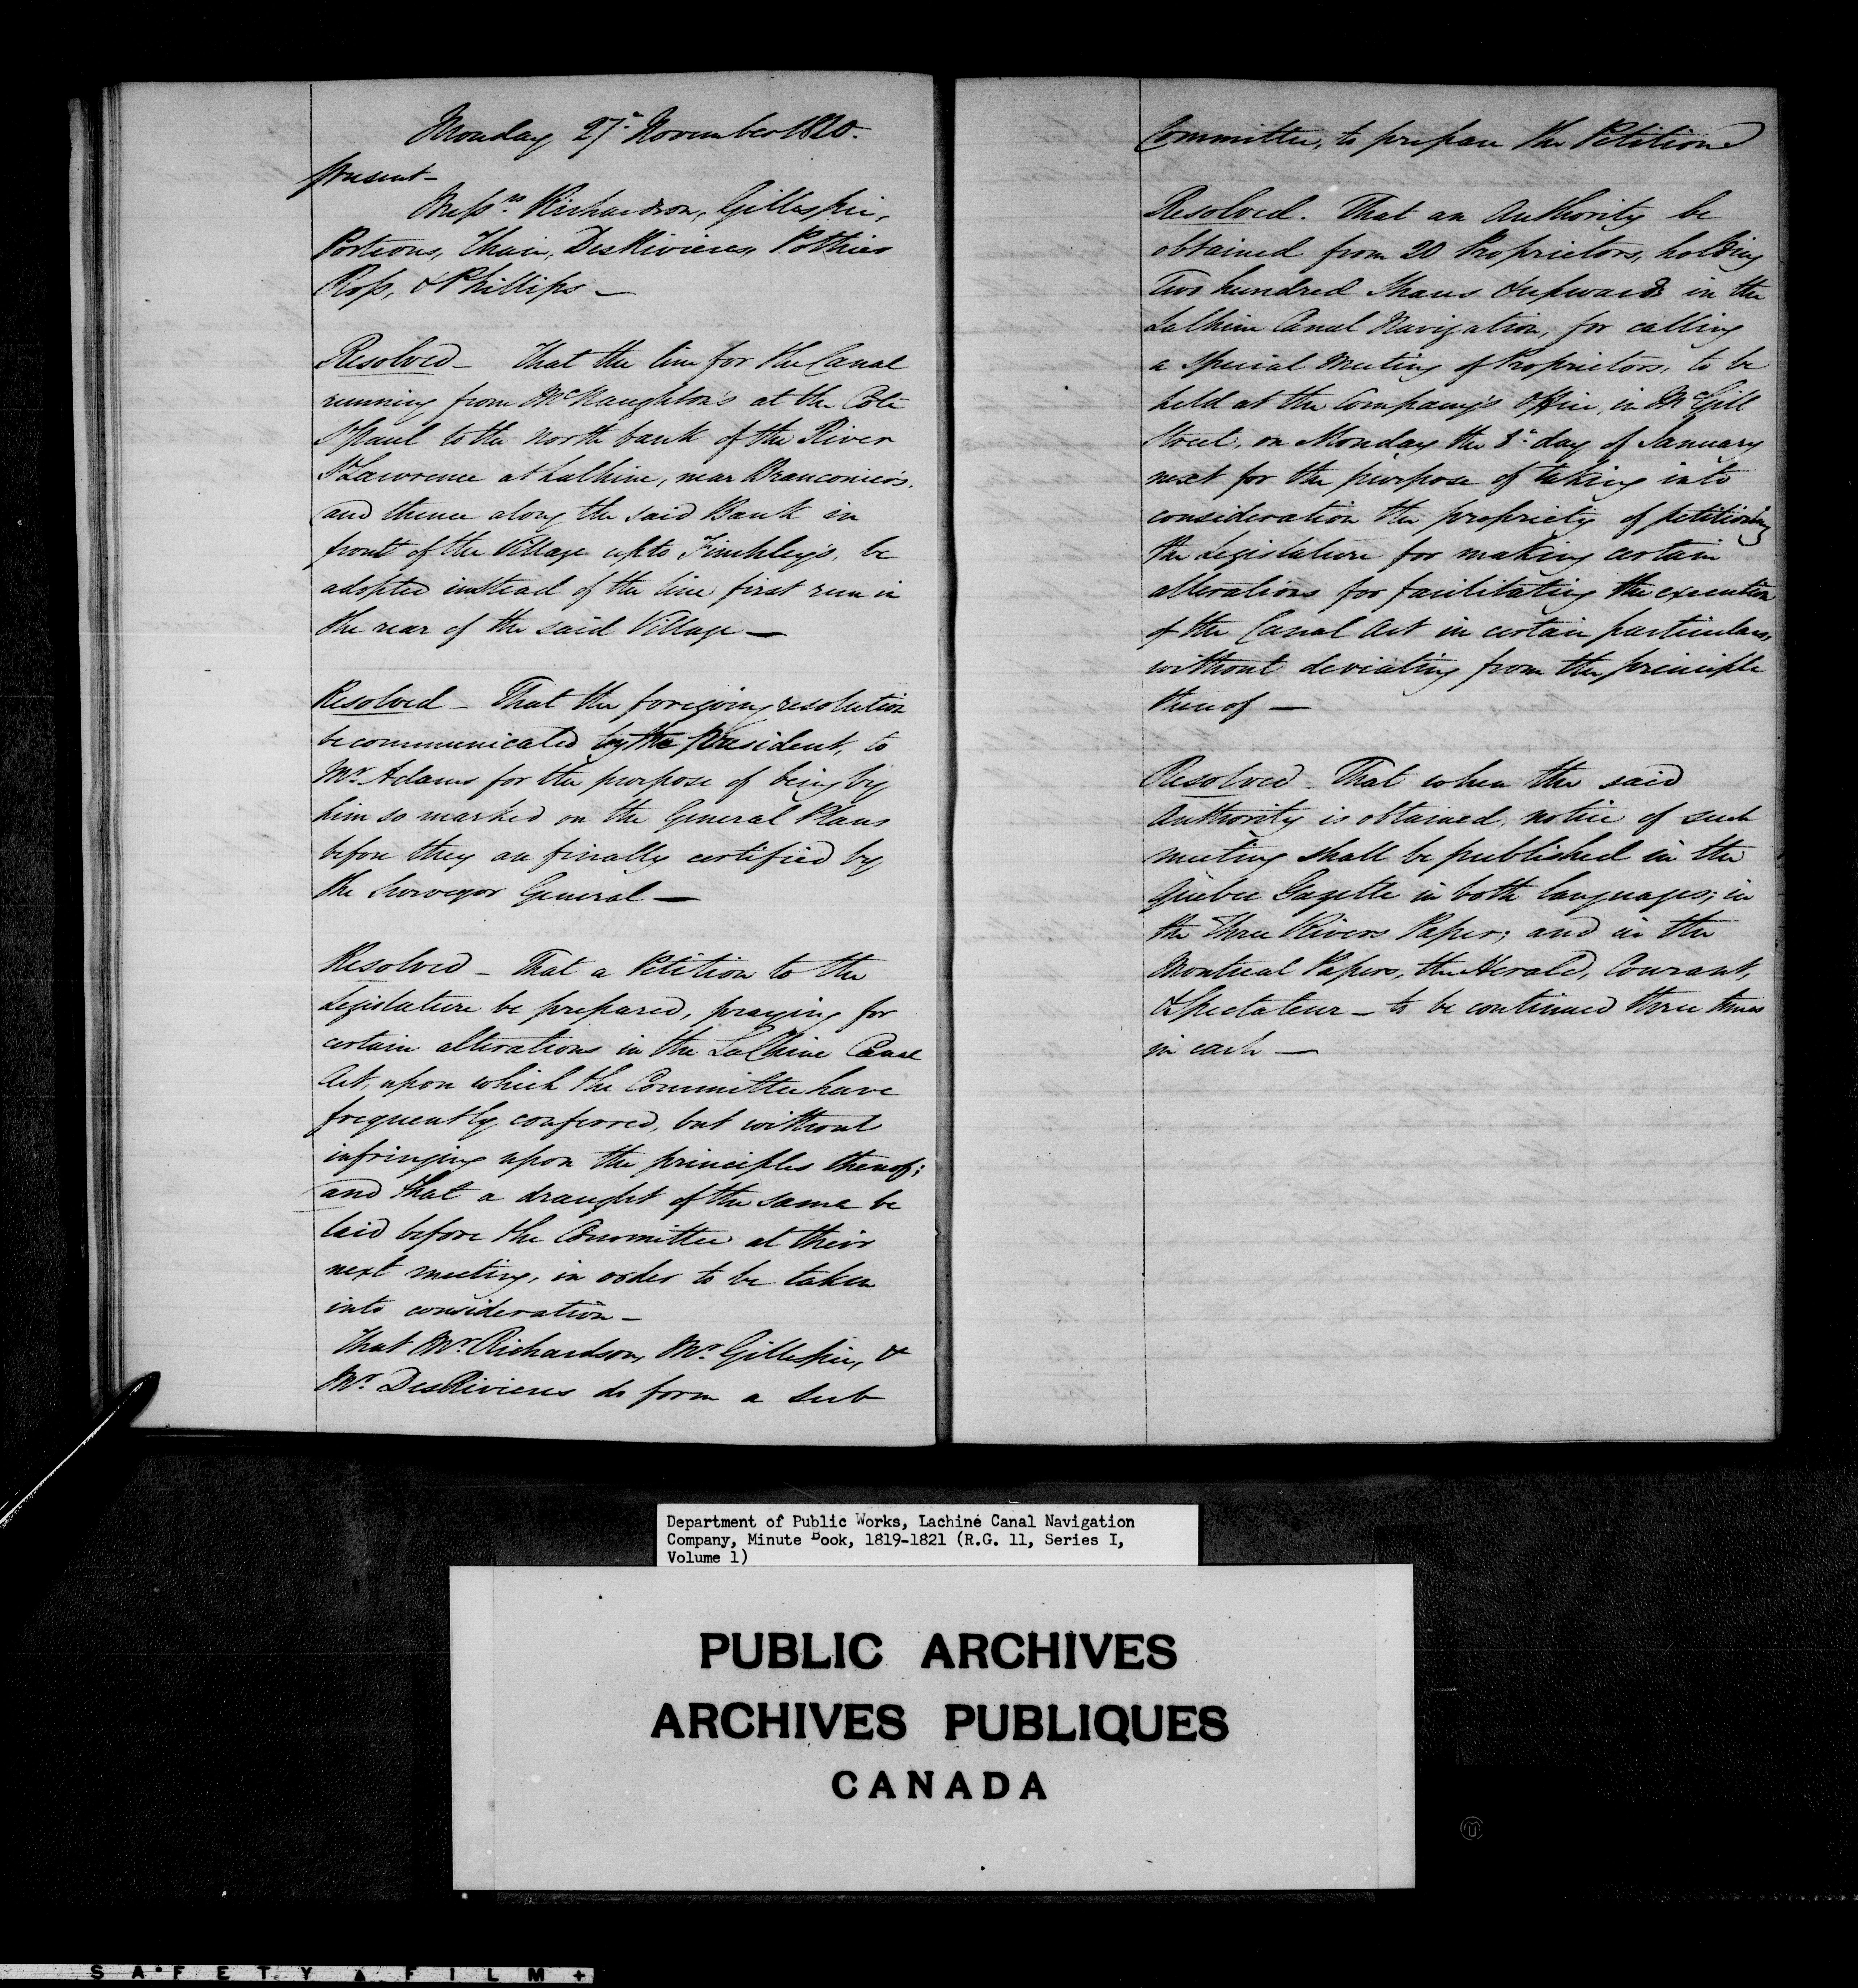 Monday 27th November 1820.
Present-
Messrs Richardson, Gillespie,
Porteous, Thain, DesRivieres, Pothier
Ross, & Phillips -
Resolved - That the line for the Canal
running from McNaughton's at the Cote
St Paul to the North bank of the River
St Lawrence at LaChine, near Branconier's,
and thence along the said Bank in
front of the Village up to Finchley's, be
adopted instead of the line first run in
the rear of the said Village -
Resolved - That the foregoing resolution
be communicated by the President, to
Mr Adams for the purpose of being by
him so marked on the General Plans
before they are finally certified by
the Surveyor General -
Resolved - That a Petition to the
Legislature be prepared, praying for
certain alterations in the LaChine Canal
Act, upon which the Committee have
frequently conferred, but without
infringing upon the principles thereof;
and that a draught of the same be
laid before the Committee at their
next meeting, in order to be taken
into consideration -
That Mr Richardson, Mr Gillespie, &
Mr DesRivieres do form a Sub
Committee, to prepare the Petition
Resolved. That an Authority be
obtained from 20 Proprietors, holding
Two hundred Shares & upwards in the
LaChine Canal Navigation, for calling
a Special Meeting of Proprietors, to be
held at the Company's Office, in McGill
Street, on Monday the 8th day of January
next for the purpose of taking into
consideration the propriety of petitioning
the Legislature for making certain
alterations for facilitating the execution
of the Canal Act in certain particulars,
without deviating from the principle
thereof -
Resolved - That when the said
Authority is obtained, notice of such
meeting shall be published in the
Quebec Gazette in both languages; in
the Three Rivers Paper; and in the
Montreal Papers, the Herald, Courant,
& Spectateur - to be continued three times
in each -
Department of Public Works, Lachine Canal Navigation
Company, Minute Book, 1819-1821 (R.G. 11, Series I,
Volume 1)
PUBLIC ARCHIVES
ARCHIVES PUBLIQUES
CANADA
SAFETY FILM